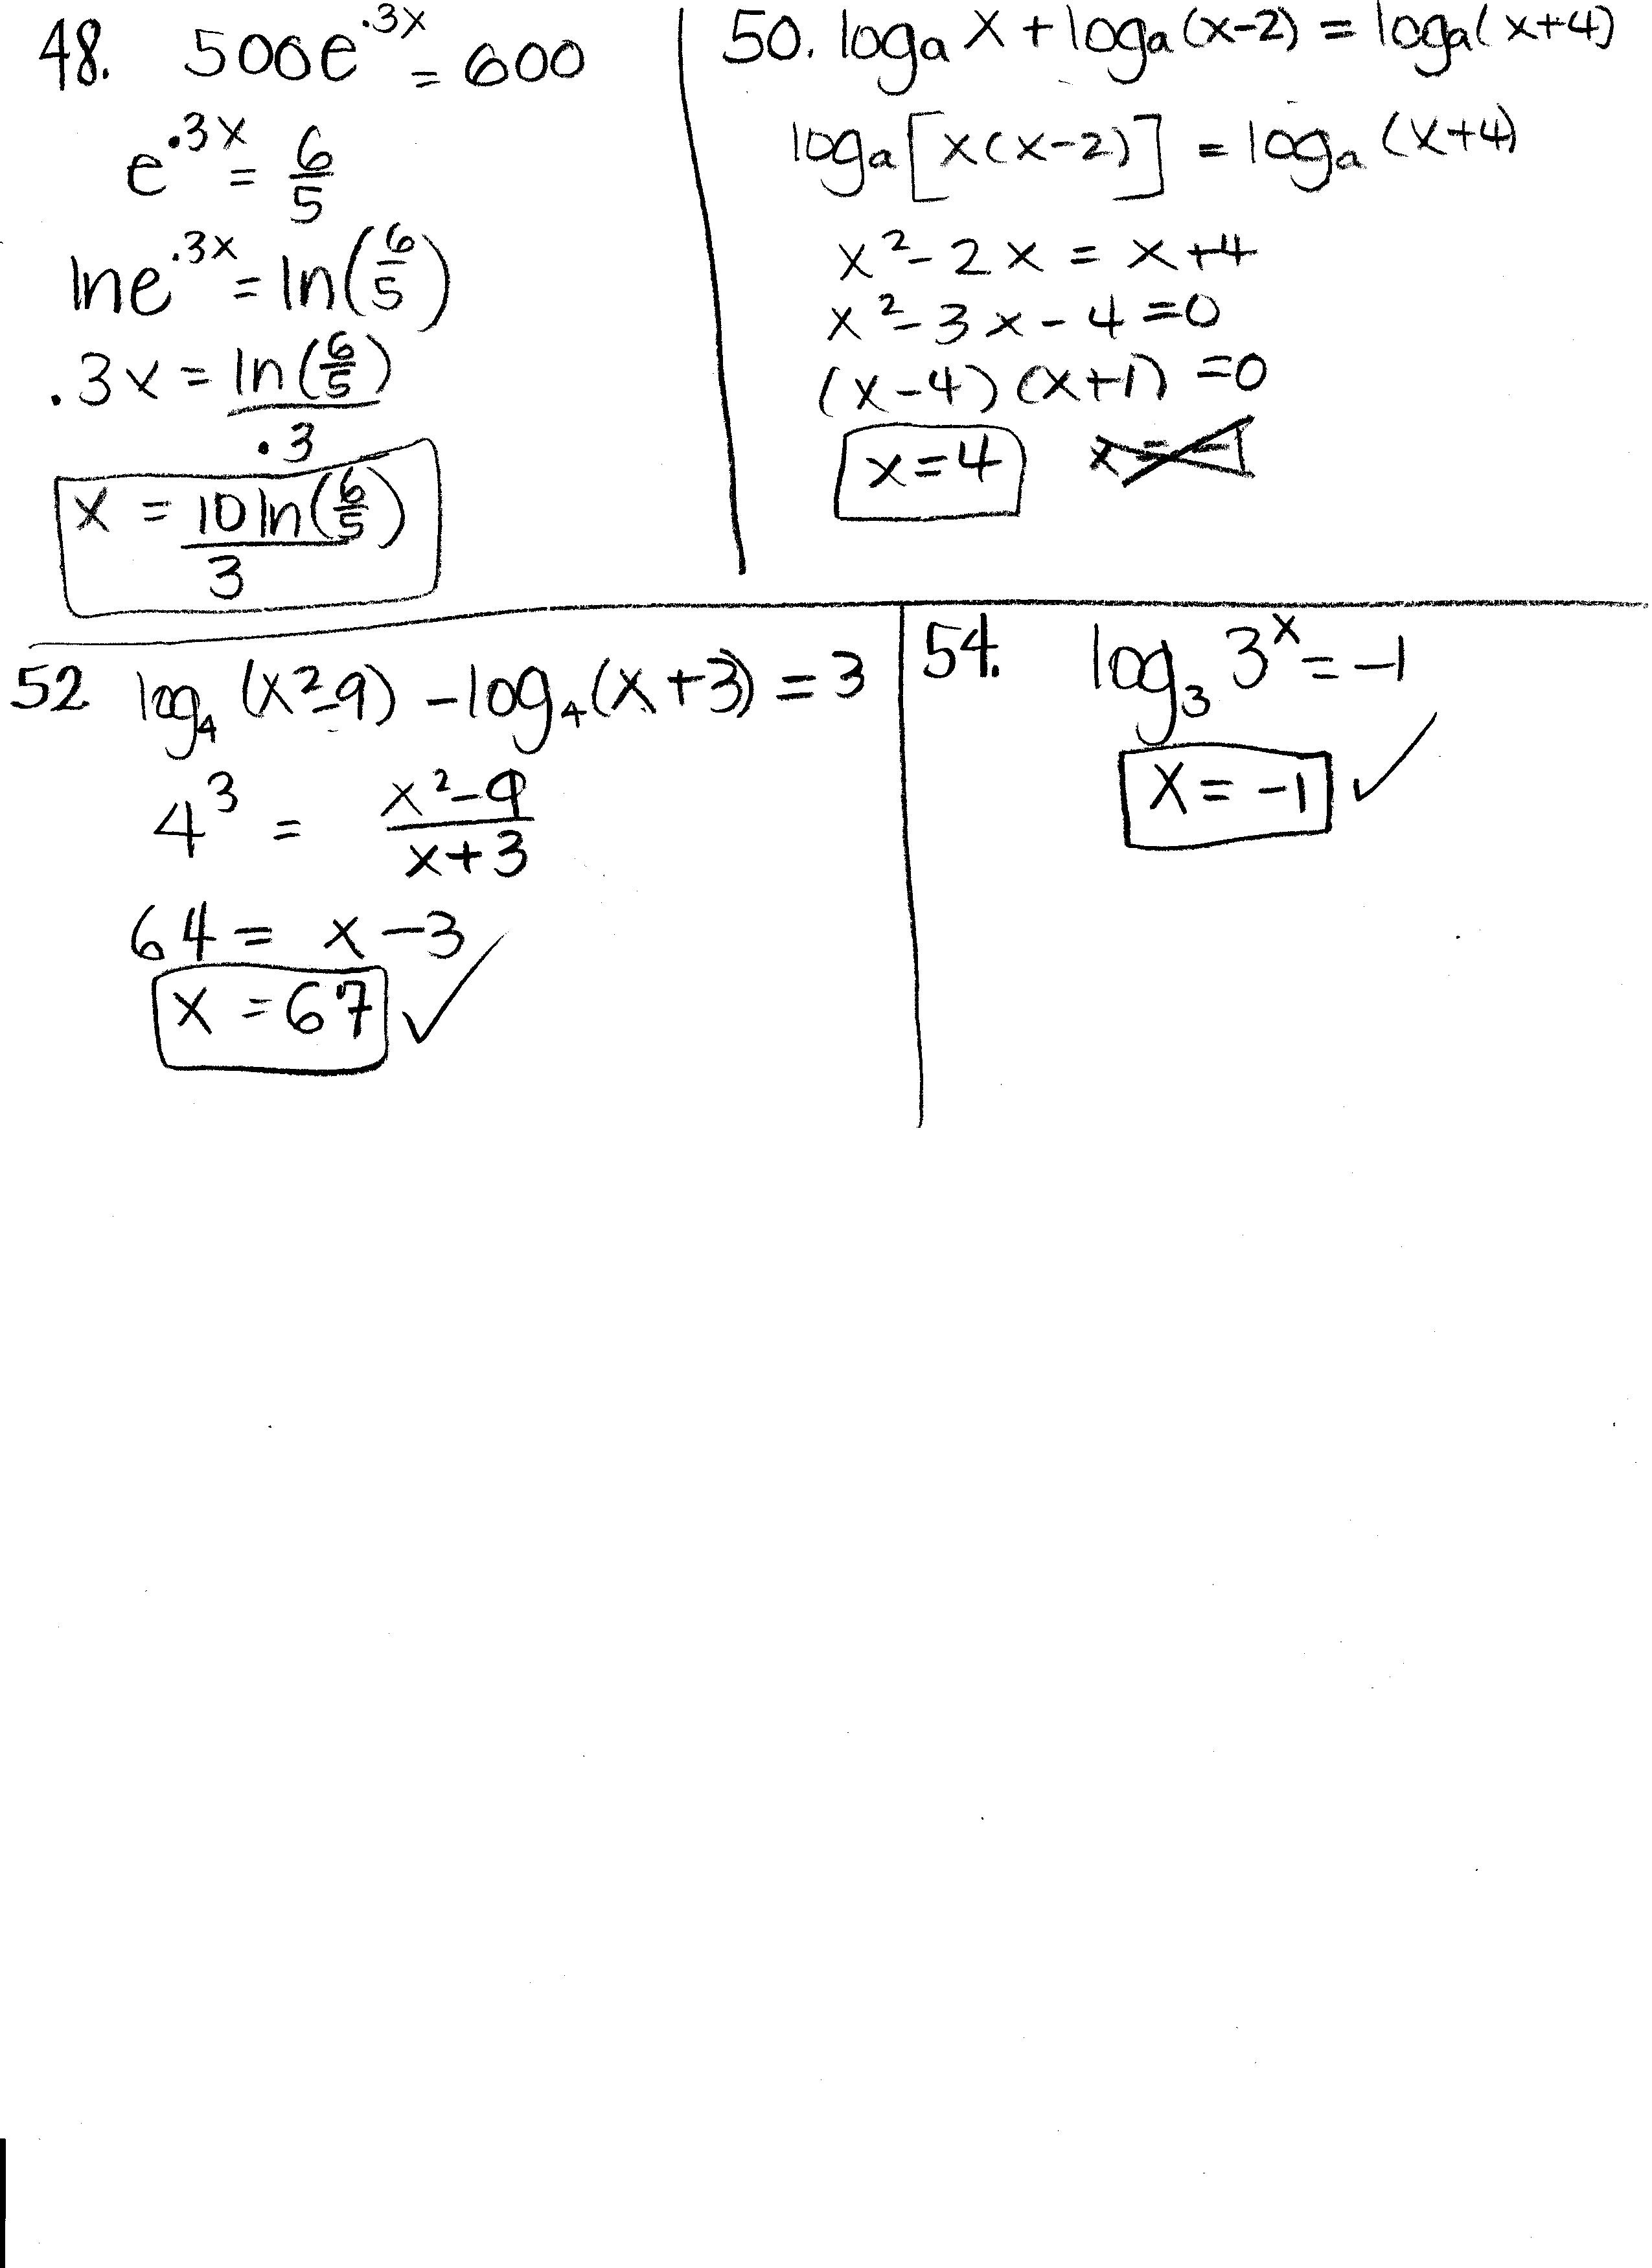 48. 500e^.3x = 600
e^.3x = 6/5
ln e^.3x = ln(6/5)
.3x = ln(6/5)/.3
x = 10 ln(6/5)/3
50. logₐ x + logₐ (x-2) = logₐ (x+4)
logₐ [x(x-2)] = logₐ (x+4)
x² - 2x = x+4
x² - 3x - 4 = 0
(x-4)(x+1) = 0
x=4 x=-1
52 log₄ (x²-9) - log₄ (x+3) = 3
4³ = x²-9/x+3
64 = x - 3
x = 67 ✓
54. log₃ 3^x = -1
x = -1 ✓